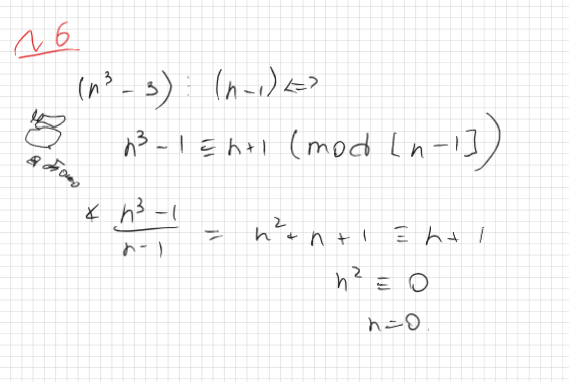 №6
(n³ - 3) ⋮ (n-1) <=>
n³ - 1 ≡ n+1 (mod [n-1])
∢ n³ - 1 / n - 1 = n² + n + 1 ≡ n + 1
n² ≡ 0
n=0.